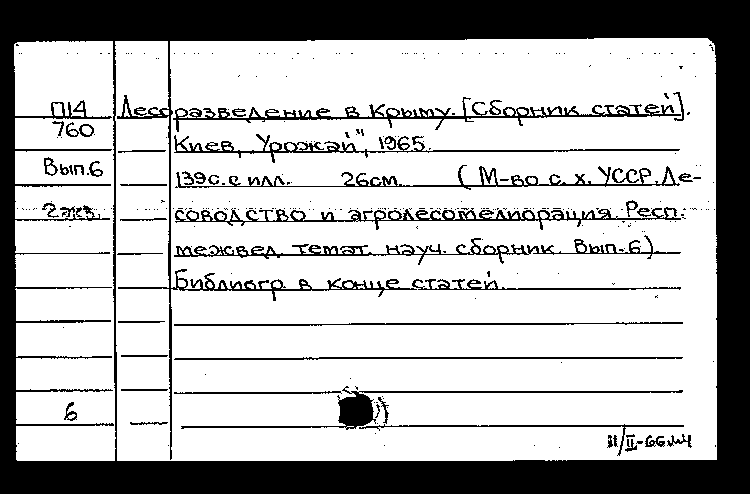 П14 Лесоразведение в Крыму. [Сборник статей].
760
Киев, „Урожай", 1965.
Вып.6
139с. с илл. 26см. (М-во с. х. УССР. Ле-
2 экз.
соводство и агролесомелиорация. Респ.
межвед. темат. науч. сборник. Вып.6).
Библиогр. в конце статей.
6
11/II-66